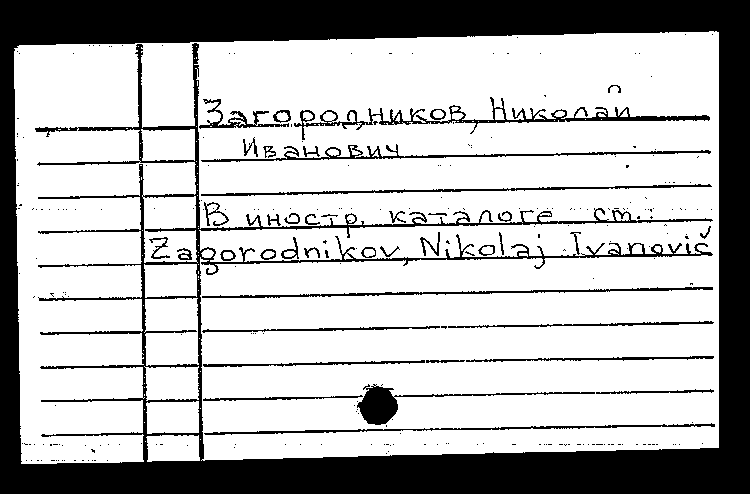 Загородников, Николай
Иванович
В иностр. каталоге см.:
Zagorodnikov, Nikolaj Ivanovič